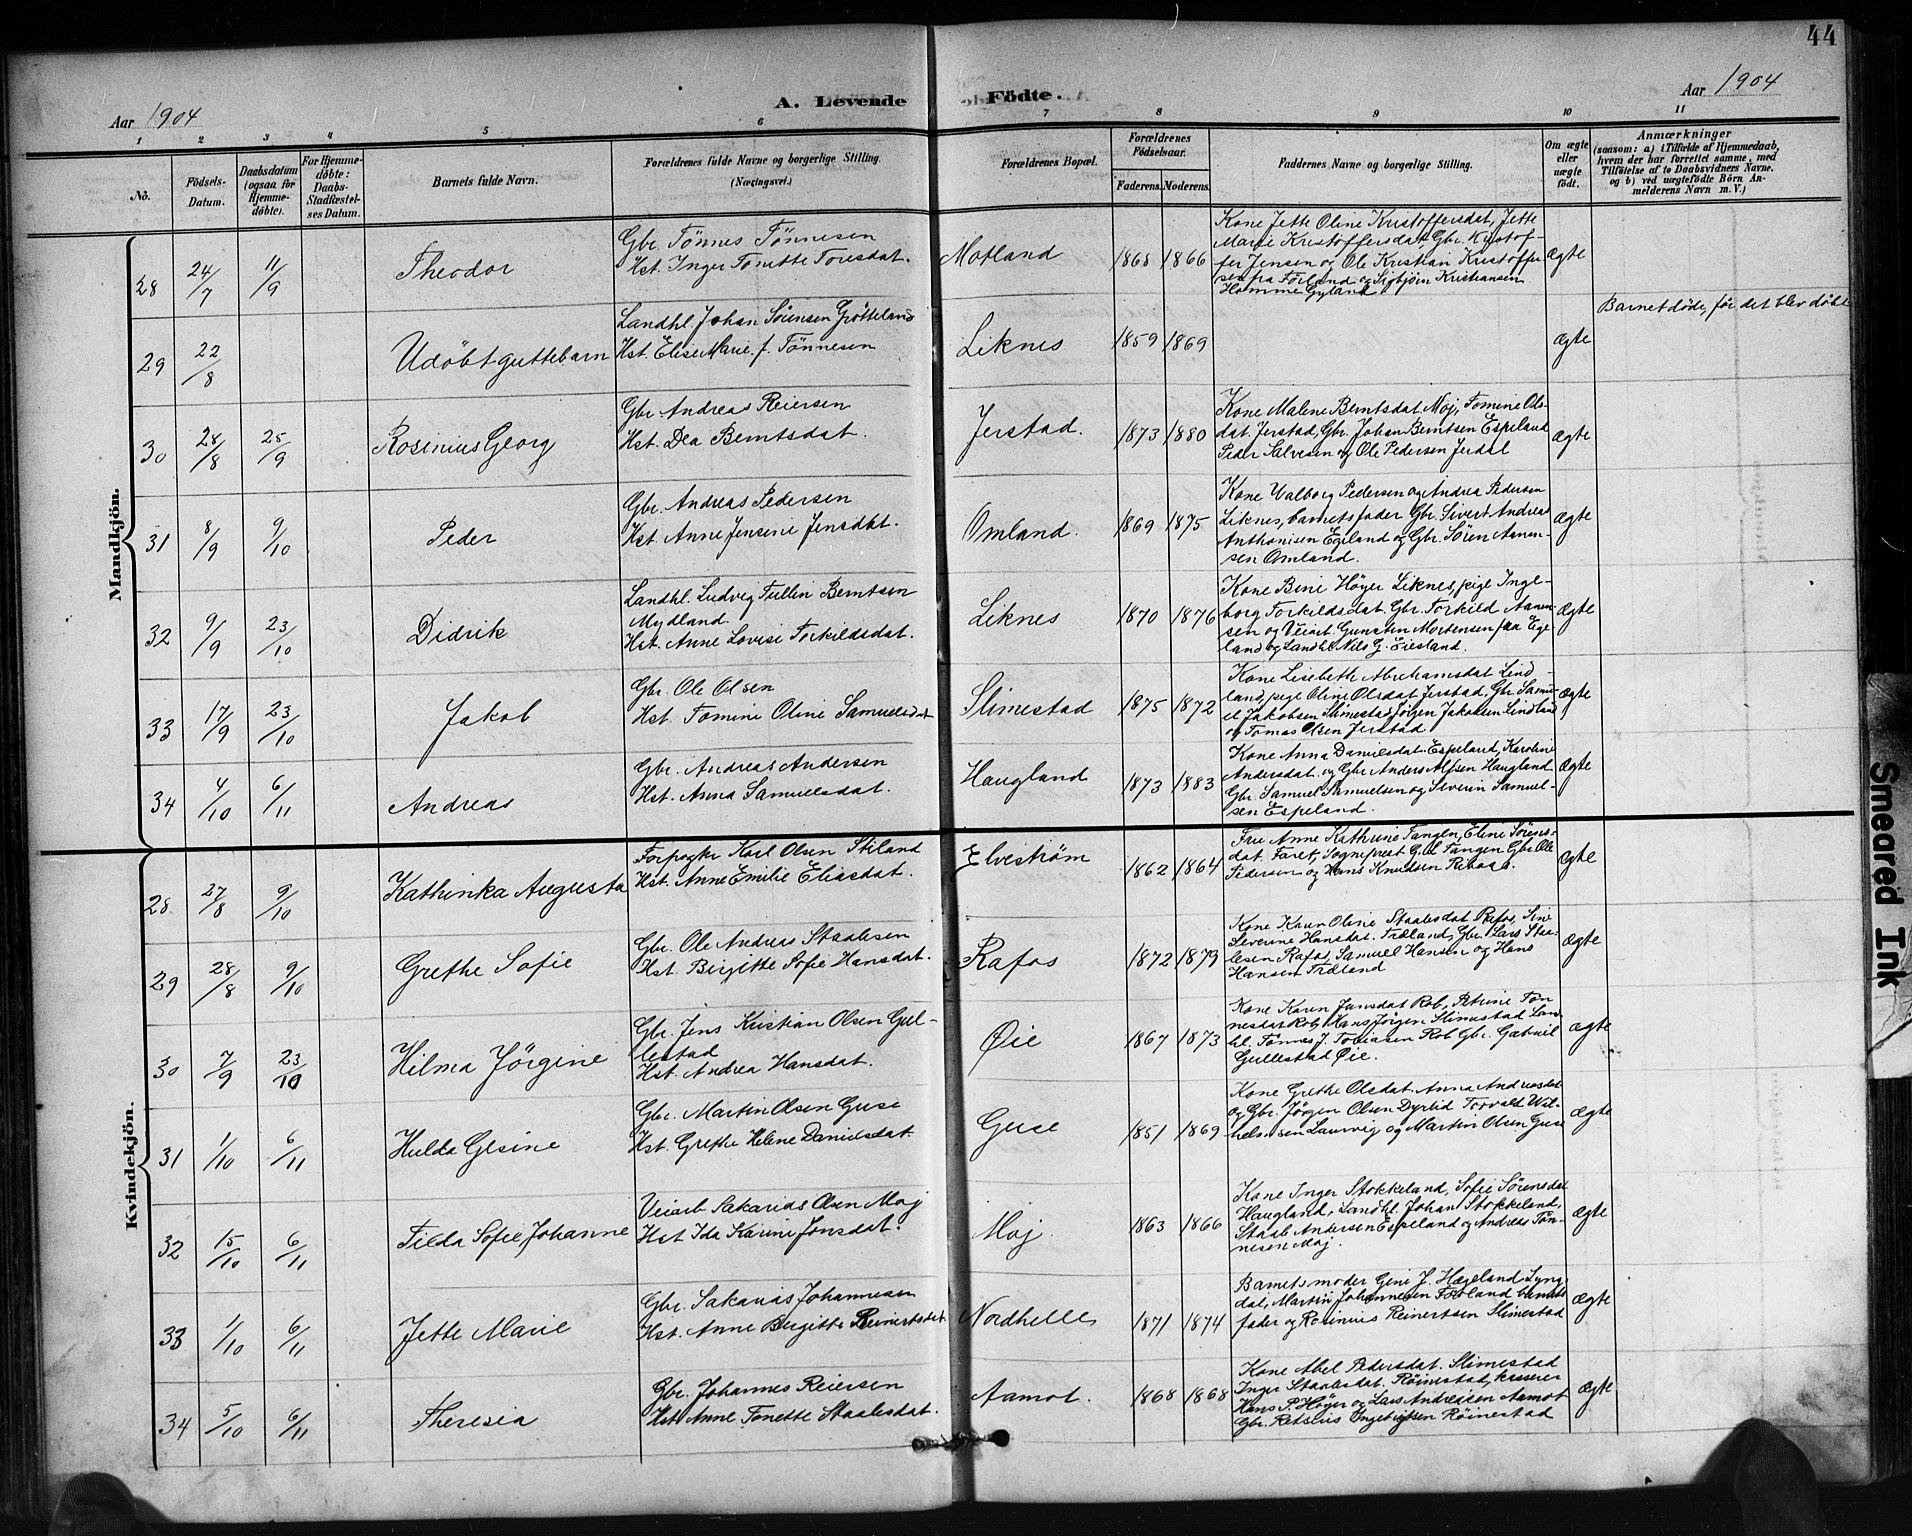 44
Aar 1904
A. Levende
Födte.
Aar 1904
1
2
3
4
5
6
7
8
9
10
11
No.
Födsels-
Datum.
Daabsdatum
(ogsaa for
Hjemme-
døbte).
For Hjemme-
døbte:
Daabs-
Stadfæstel-
ses Datum.
Barnets fulde Navn.
Forældrenes fulde Navne og borgerlige Stilling.
(Næringsvei.)
Forældrenes Bopæl.
Forældrenes
Födselsaar.
Faderens.
Moderens.
Faddernes Navne og borgerlige Stilling.
Om ægte
eller
uægte
født.
Anmærkninger
(saasom: a) i Tilfælde af Hjemmedaab,
hvem der har forrettet samme, med
Tilføielse af to Daabsvidners Navne.
og b) ved uægtefødte Börn An-
melderens Navn m. V.)
Mandkjön.
28
24/7
11/9
Theodor
Gbr. Tönnes Tönnesen
Hst. Inger Tonette Toresdat.
Motland
1868
1866
Kone Jette Oline Kristoffersdat, Jette
Marie Kristoffersdat, Gbr. Kristof-
fer Jensen og Ole Kristian Kristoffer-
sen fra Förland og Sigbjörn Kristiansen
Homme Gyland
ægte
29
22/8
Udöbt guttebarn
Landhl. Johan Sörensen Grötteland
Hst. Elise Marie f. Tönnesen
Liknes
1859
1869
ægte
Barnet döde, för det blev döbt
30
28/8
25/9
Rosinius Georg
Gbr. Andreas Reiersen
Hst. Dea Berntsdat.
Jerstad.
1873
1880
Kone Malene Berntsdat Moj, Tomine Ols-
dat. Jerstad, Gbr. Johan Berntsen Espeland
Peder Salvesen og Ole Pedersen Jerdal
ægte
31
8/9
9/10
Peder
Gbr. Andreas Pedersen
Hst. Anne Jensine Jensdat.
Omland.
1869
1875
Kone Valborg Pedersen og Andrea Pedersen
Liknes, barnets fader Gbr. Sivert Andreas
Anthonisen Egeland og Gbr. Sören Aanen-
sen Omland.
ægte
32
9/9
23/10
Didrik
Landhl. Ludvig Tullin Berntsen
Mydland.
Hst. Anne Lovise Torkildsdat.
Liknes
1870
1876
Kone Bine Höyer Liknes, pige Inge-
borg Torkildsdat. Gbr. Torkild Aanen-
sen og Veiarb. Gunsten Mortensen fra Ege-
land og Landhl. Nils G. Eiesland.
ægte
33
17/9
23/10
Jakob
Gbr. Ole Olsen
Hst. Tomine Oline Samuelsdat
Slimestad
1875
1872
Kone Lisebeth Abrahamsdat Lind-
land, pige Oline Olsdat Jerstad, Gbr. Samu-
el Jakobsen Slimestad, Jörgen Jakobsen Lindland
og Tomas Olsen Jerstad
ægte
34
4/10
6/11
Andreas
Gbr. Andreas Andersen
Hst. Anna Samuelsdat.
Haugland
1873
1883
Kone Anna Danielsdat. Espeland, Karoline
Andersdat. og Gbr. Anders Alfsen Haugland
Gbr. Samuel Samuelsen og Severin Samuel-
sen Espeland.
ægte
Kvindekjön.
28
27/8
9/10
Kathinka Augusta
Forpagter Karl Olsen Stiland
Hst. Anne Emilie Eliasdat.
Elveström
1862
1864
Fru Anne Kathrine Tangen, Eline Sörens-
dat. Faret, Sogneprest Gul Tangen Gbr. Ole
Pedersen og Hans Knudsen
ægte
29
28/8
9/10
Grethe Sofie
Gbr. Ole Andreas Staalesen
Hst. Birgitte Sofie Hansdat.
Rafos
1872
1879
Kone Karen Oline Staalesdat Rafos, Sine
Severine Hansdat. Træland, Gbr. Lars Staa-
lesen Rafos, Samuel Hansen og Hans
Hansen Træland
ægte
30
7/9
23/10
Hilma Jörgine
Gbr. Jens Kristian Olsen Gul-
lestad
Hst. Andrea Hansdat.
Öie
1867
1873
Kone Karen Jansdat Rob, Petrine Tön-
nesdat Rob, Hans Jörgen Slimestad Lan-
hl. Tönnes J. Tobiasen Rob Gbr. Gabriel
Gullestad Öie.
ægte
31
1/10
6/11
Hulda Gesine
Gbr. Martin Olsen Guse
Hst. Grethe Helene Danielsdat.
Guse
1851
1869
Kone Grethe Olsdat. Anna Andreasdat
og Gbr. Jörgen Olsen Dyrlid Torvald Wil-
helmsen Laurvig og Martin Olsen Guse
ægte
32
15/10
6/11
Tilda Sofie Johanne
Veiarb Sakarias Olsen Moj
Hst Ida Karine Jonsdat.
Moj.
1863
1866
Kone Inger Stokkeland, Sofie Sörensdat
Haugland, Landhl. Johan Stokkeland,
Staale Andersen Espeland og Andreas Tön-
nesen Moj.
ægte
33
1/10
6/11
Jette Marie
Gbr. Sakarias Johannesen
Hst. Anne Birgitte Reinertsdat
Nordhelle
1871
1874
Barnets moder Gine J. Hægeland Lyng-
dal, Martin Johannesen Förland barnets
fader og Rosinius Reinertsen Slimestad
ægte
34
5/10
6/11
Theresia
Gbr. Johannes Reiersen
Hst Anne Tonette Staalesdat.
Aamot.
1868
1868
Kone Abel Pedersdat. Slimestad
Inger Staalesdat. Röinestad, kasserer
Hans P. Höyer og Lars Andreasen Aamot
Gbr. Retslius Ingebrigtsen Röinestad
ægte
Smeared Ink